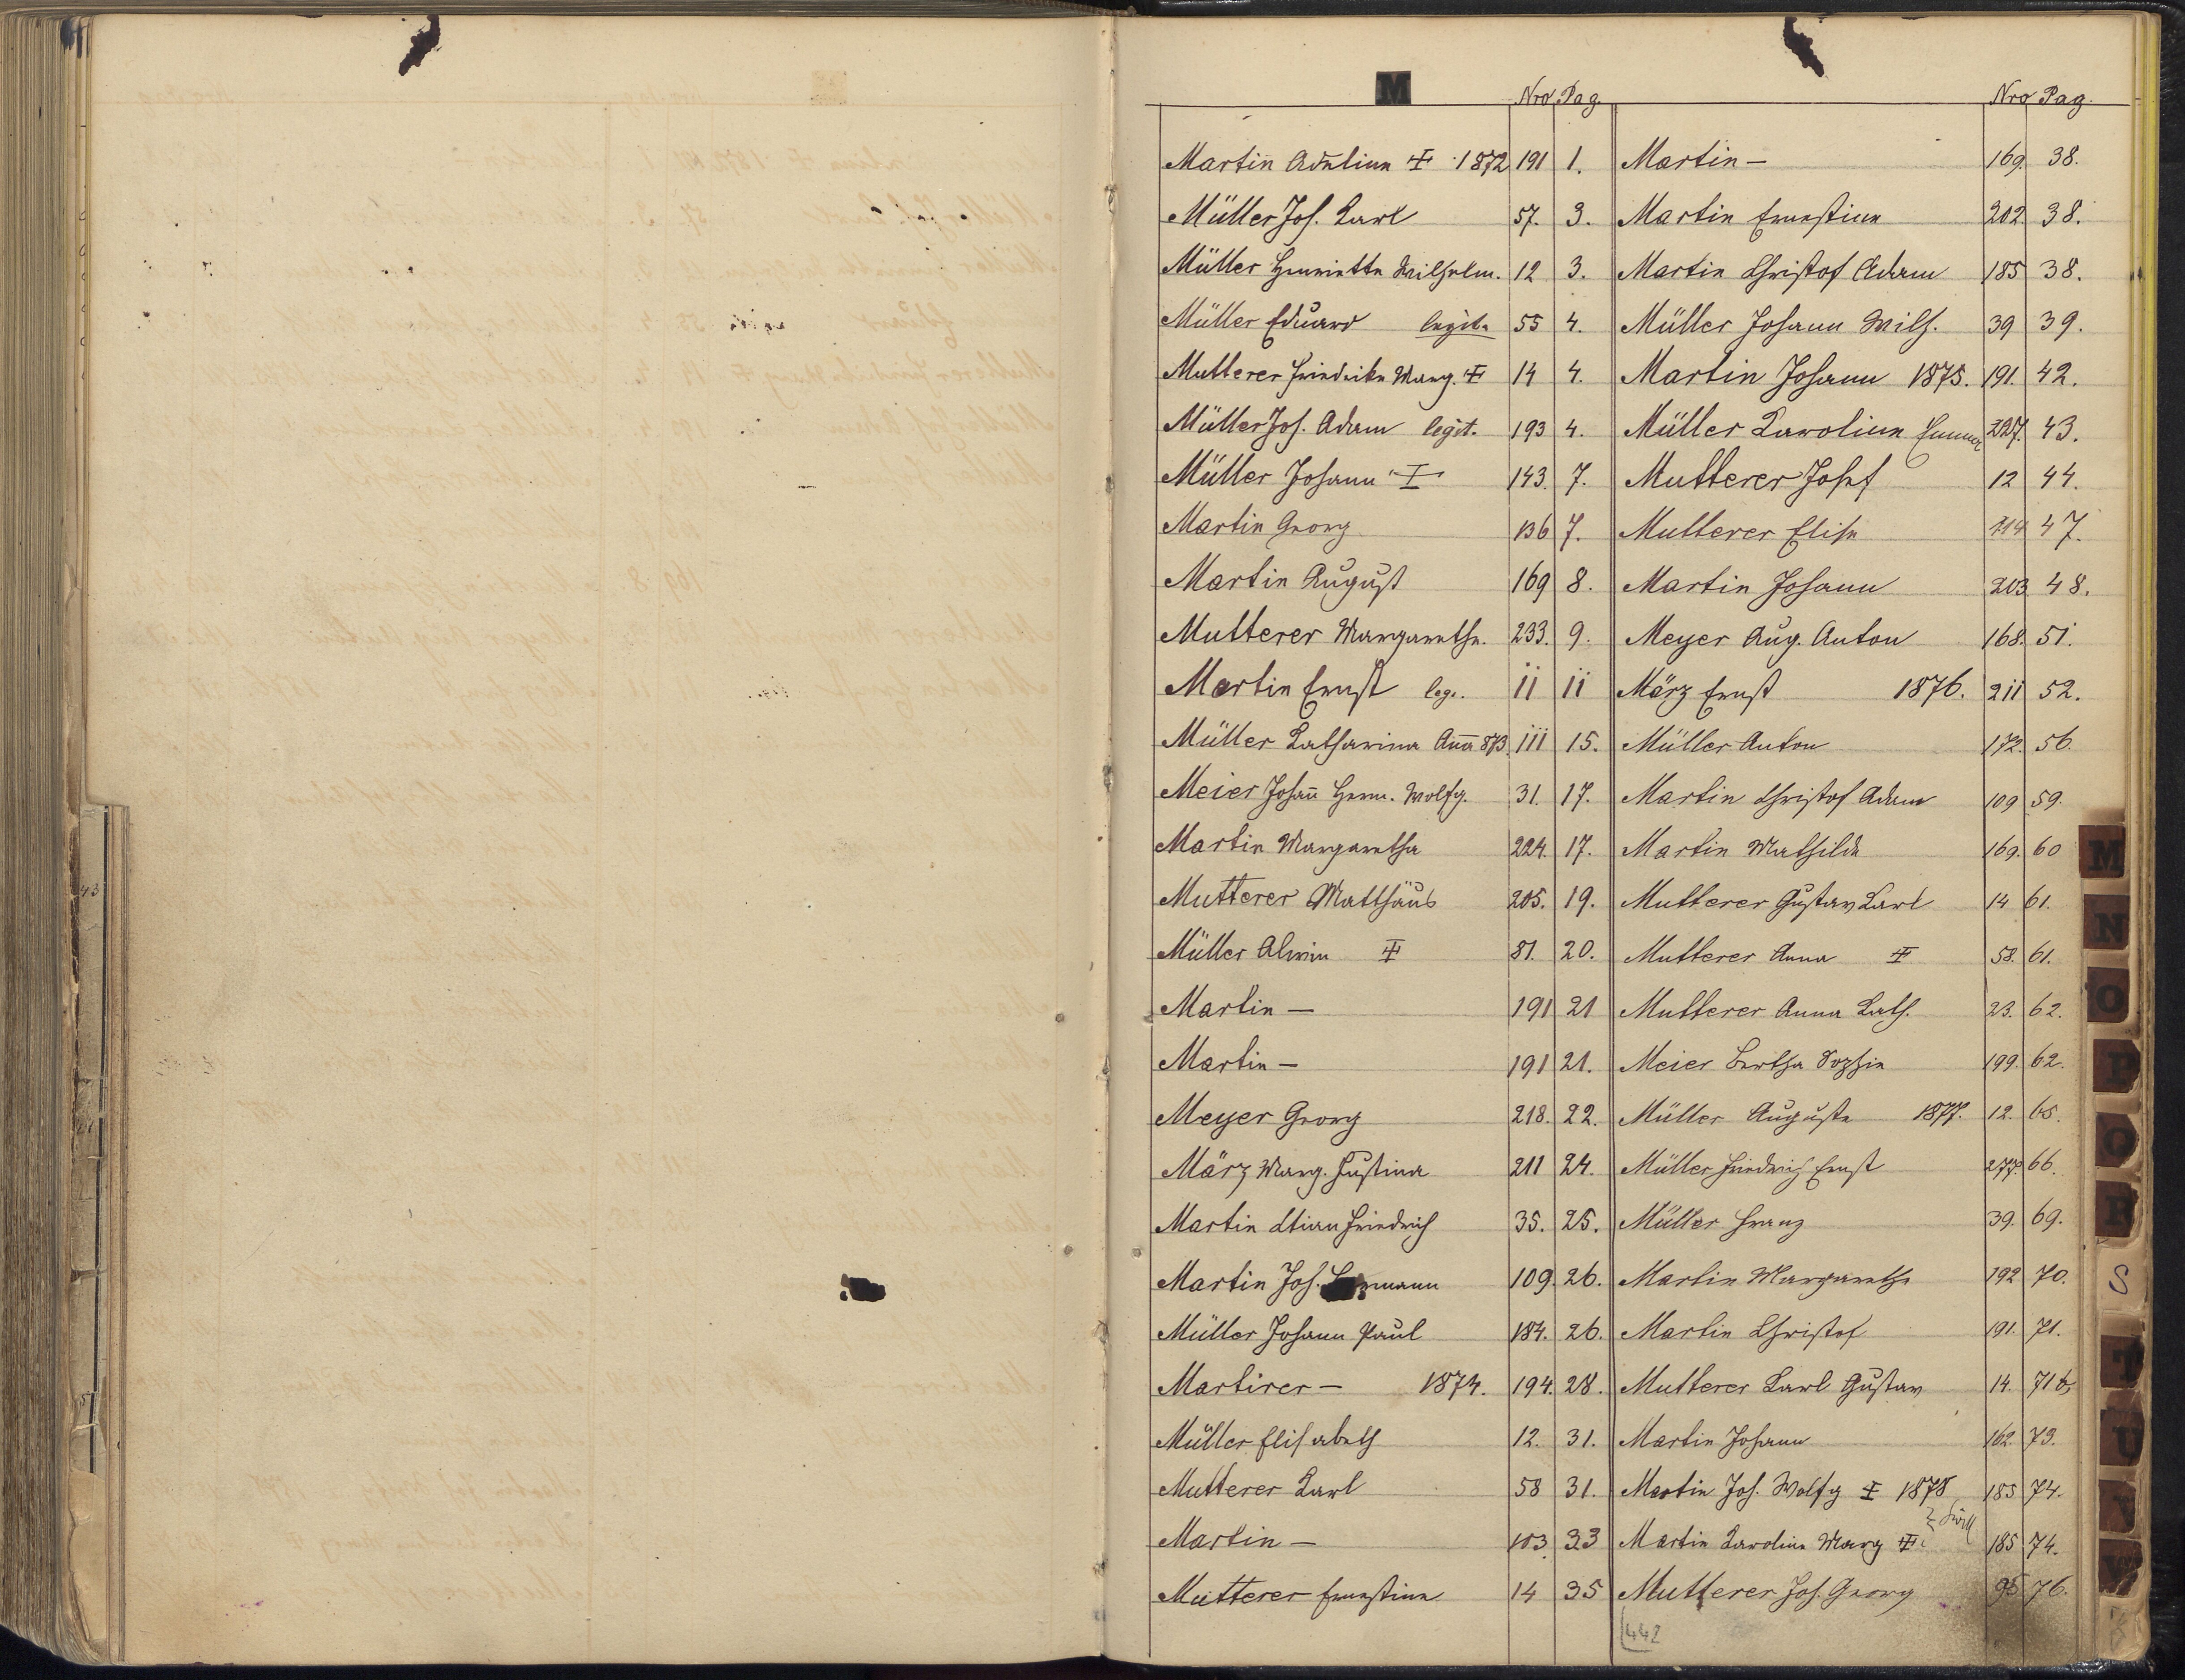 M
Nro Pag.
Martin Adeline 1872 191 1.
Müller Joh. Karl 57. 3.
Müller Henriette Wilhelm. 12 3.
Müller Eduard legit. 55 4.
Mutterer Friedrike Marg. 14 4.
Müller Joh. Adam legit. 193 4.
Müller Johann 143. 7.
Martin Georg 136 7.
Martin August 169 8.
Mutterer Margarethe. 233. 9.
Martin Ernst leg. 11 11
Müller Katharina Aña 873. 111 15.
Meier Johañ Herm. Wolfg. 31. 17.
Martin Margaretha 224. 17.
Mutterer Matthäus 205. 19.
Müller Alwin 81. 20.
Martin — 191 21
Martin — 191 21.
Meyer Georg 218. 22.
März Marg. Justina 211 24.
Martin Friedrich 35. 25.
Martin Joh. Hermann 109. 26.
Müller Johann Paul 184. 26.
Martirer — 1874. 194. 28.
Müller Elisabeth 12. 31.
Mutterer Karl 58 31.
Martin — 103. 33
Mutterer Ernestine 14 35
Nro Pag.
Martin — 169. 38.
Martin Ernestine 202. 38.
Martin Christof Adam 185 38.
Müller Johann Wilh. 39 39.
Martin Johann 1875. 191. 42.
Müller Karoline Emma 227. 43.
Mutterer Josef 12 44.
Mutterer Elise 214 47.
Martin Johann 203. 48.
Meyer Aug. Anton 168. 51.
März Ernst 1876. 211 52.
Müller Anton 172. 56.
Martin Christof Adam 109 59.
Martin Mathilde 169. 60
Mutterer Gustav Karl 14 61.
Mutterer Anna 58. 61.
Mutterer Anna Kath. 23. 62.
Meier Bertha Sophie 199. 62.
Müller Auguste 1877. 12. 65.
Müller Friedrich Ernst 277. 66.
Müller Franz 39. 69.
Martin Margarethe 192 70.
Martin Christof 191. 71.
Mutterer Karl Gustav 14. 71b,
Martin Johann 162. 73.
Martin Joh. Wolfg 1878 185 74.
Martin Karoline Marg 185 74.
Mutterer Joh. Georg 95 76.
442
M
N
O
P
Q
R
S
T
U
V
W
Z